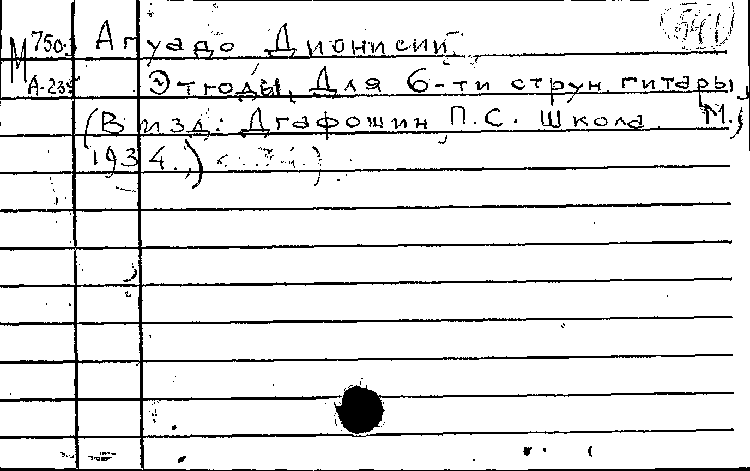 М 750. Агуадо Дионисий.
А-235 Этюды, Для 6-ти струн. гитары,
(В изд: Агафошин, П.С. Школа М.,
1934.,)